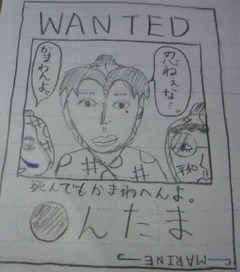 WANTED
忍ねぇな…。
かまわんよ。
平和
死んでもかまわへんよ。
●んたま
MARINE